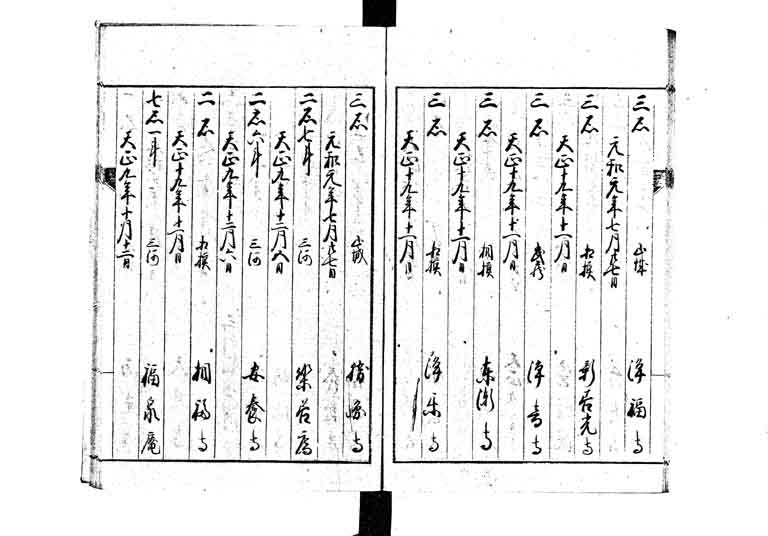 三石 山城 浄福寺
元和元年七月廿七日
三石 相模 新居光寺
天正十九年十一月日
三石 武蔵 浄音寺
天正十九年十一月日
三石 相模 東漸寺
天正十九年十一月日
三石 相模 浄楽寺
天正十九年十一月日
三石 山城 勝寺
元和元年七月廿七日
二石七斗 三河 庵
天正九年十二月六日
二石六斗 三河 安養寺
天正九年十二月六日
二石 相模 相福寺
天正十九年十一月日
七石一斗 三河 福泉庵
天正九年十月十二日